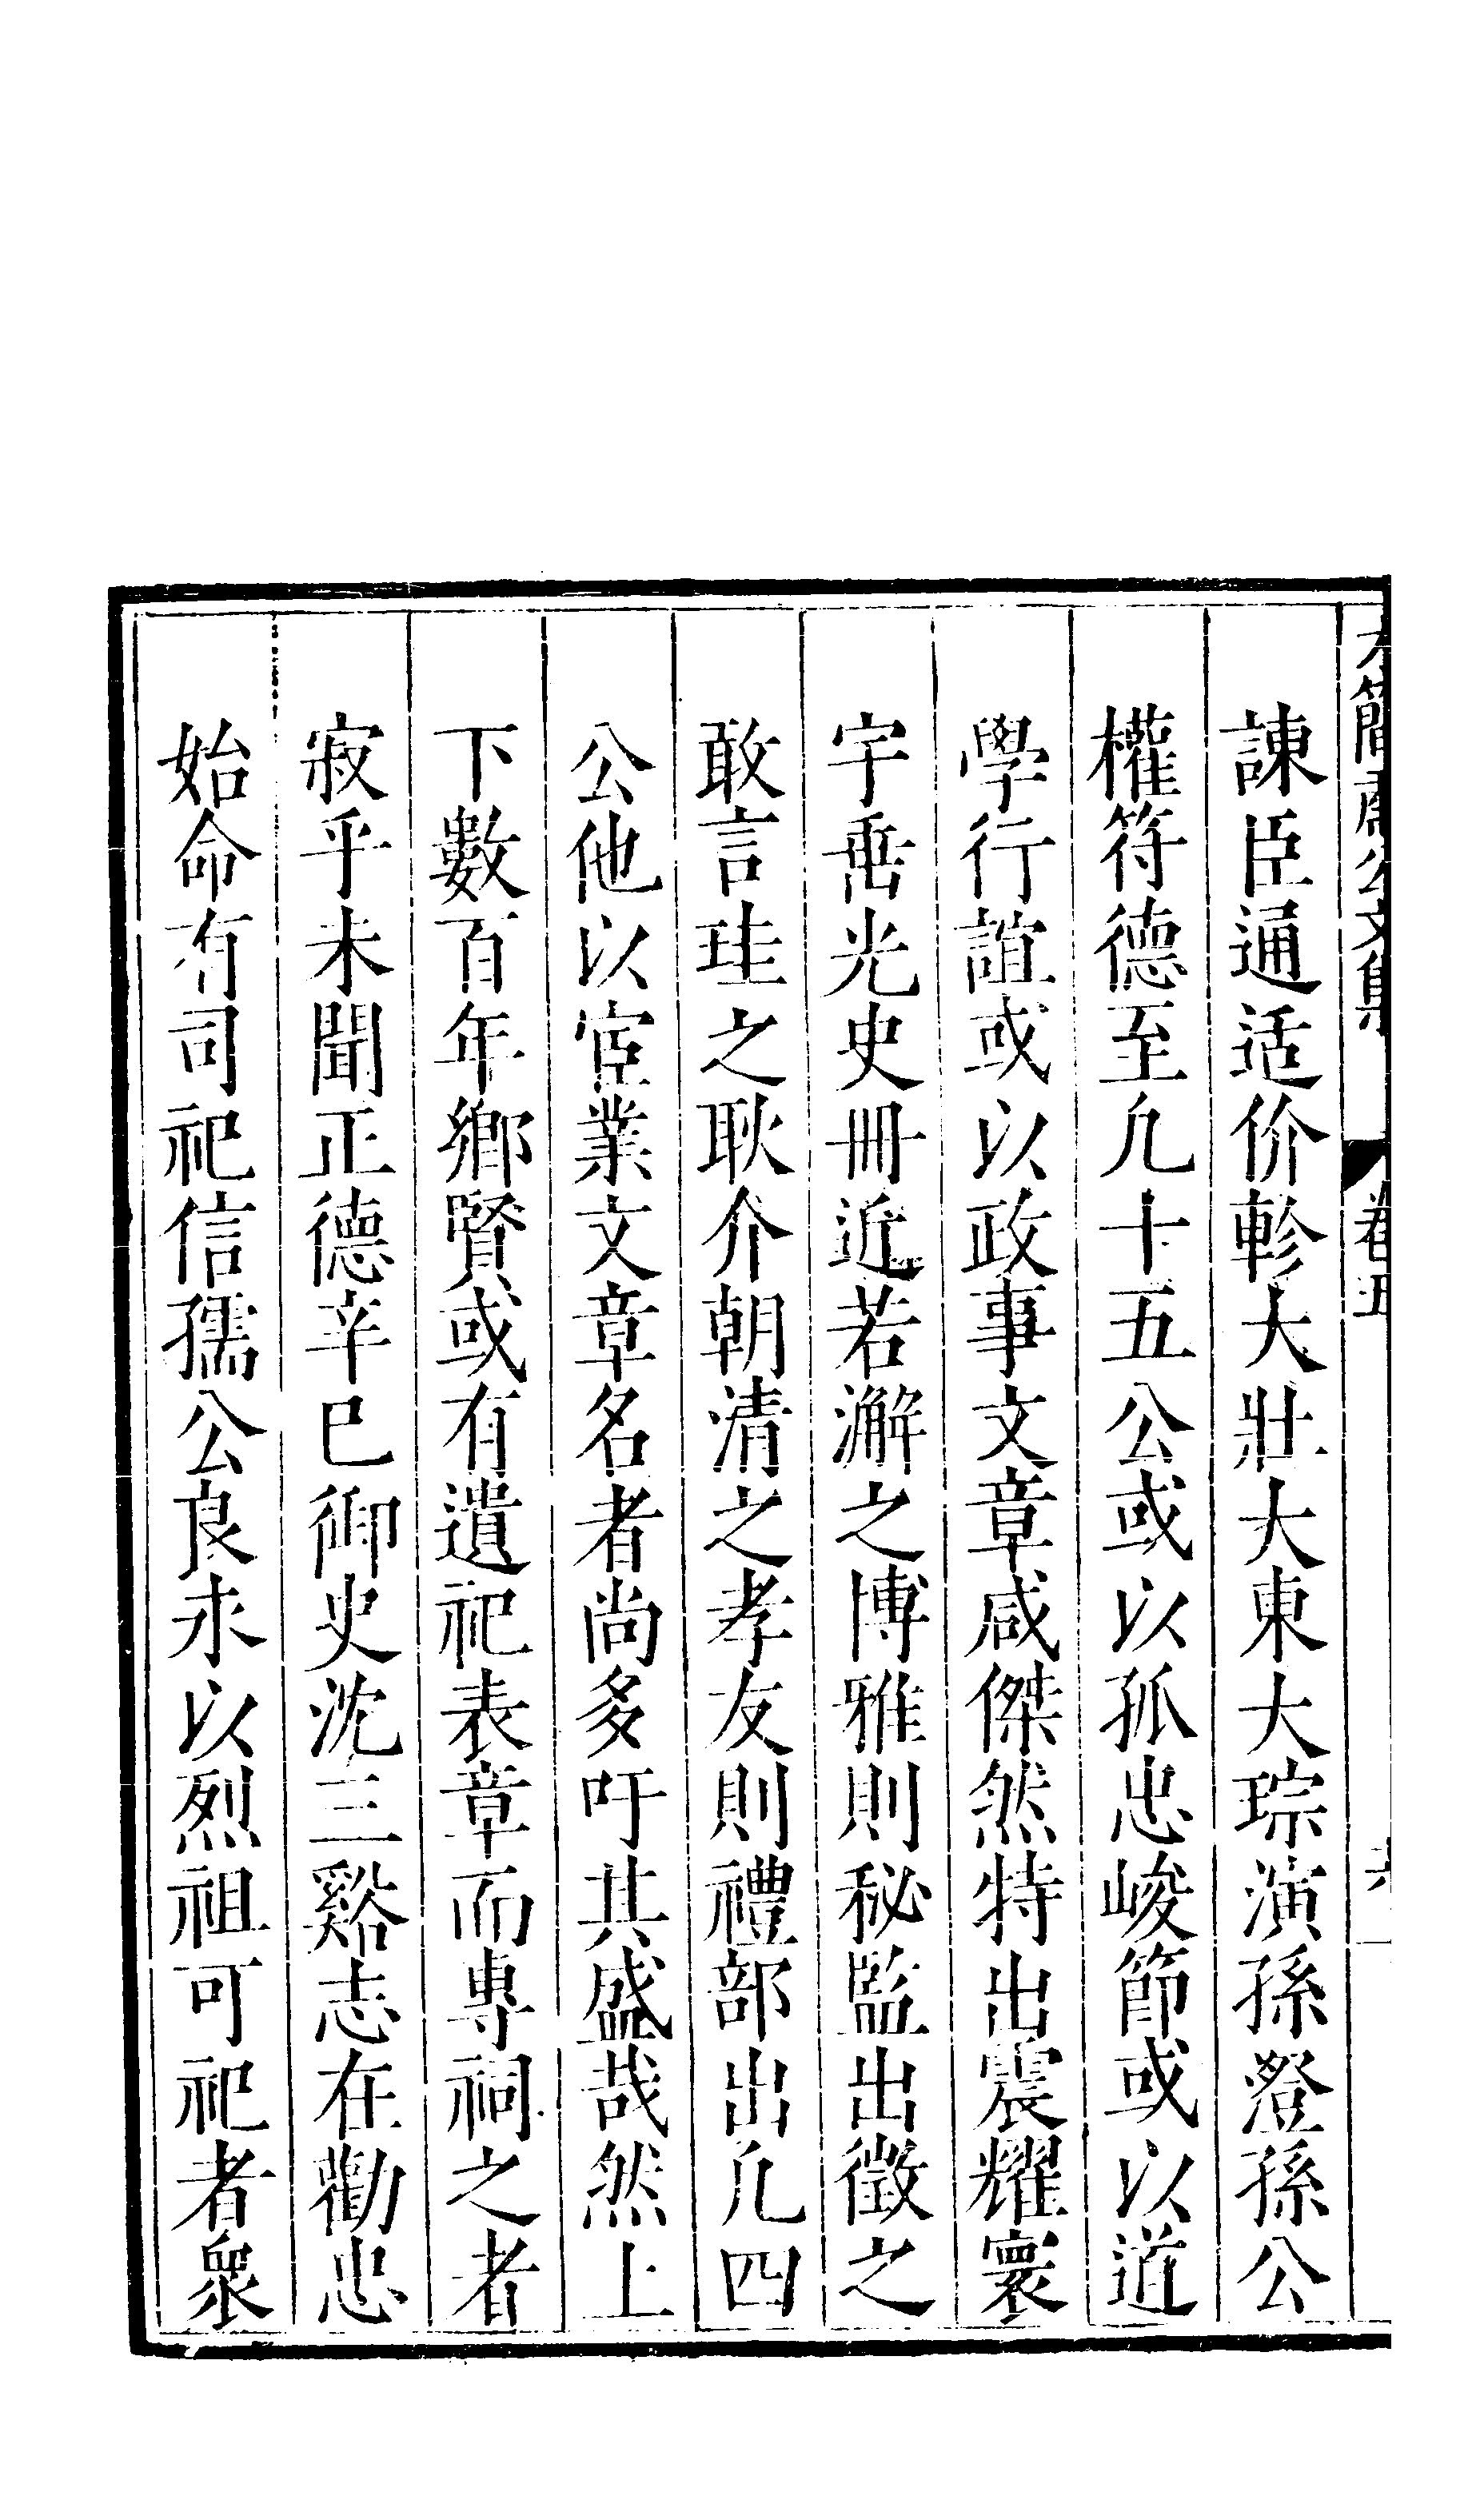 方簡肅公文集 卷五
諫臣通适价軫大壯大東大琮演孫澄孫公
權符德至凢十五公或以孤忠峻節或以道
學行誼或以政事文章咸傑然特出震耀寰
宇垂光史冊近若澥之博雅則秘監出徵之
敢言珪之耿介朝清之孝友則禮部出凢四
公他以宦業文章名者尚多吁其盛哉然上
下數百年鄉賢或有遺祀表章而專祠之者
寂乎未聞正德辛巳御史沈三谿志在勸忠
始命有司祀信孺公良永以烈祖可祀者衆